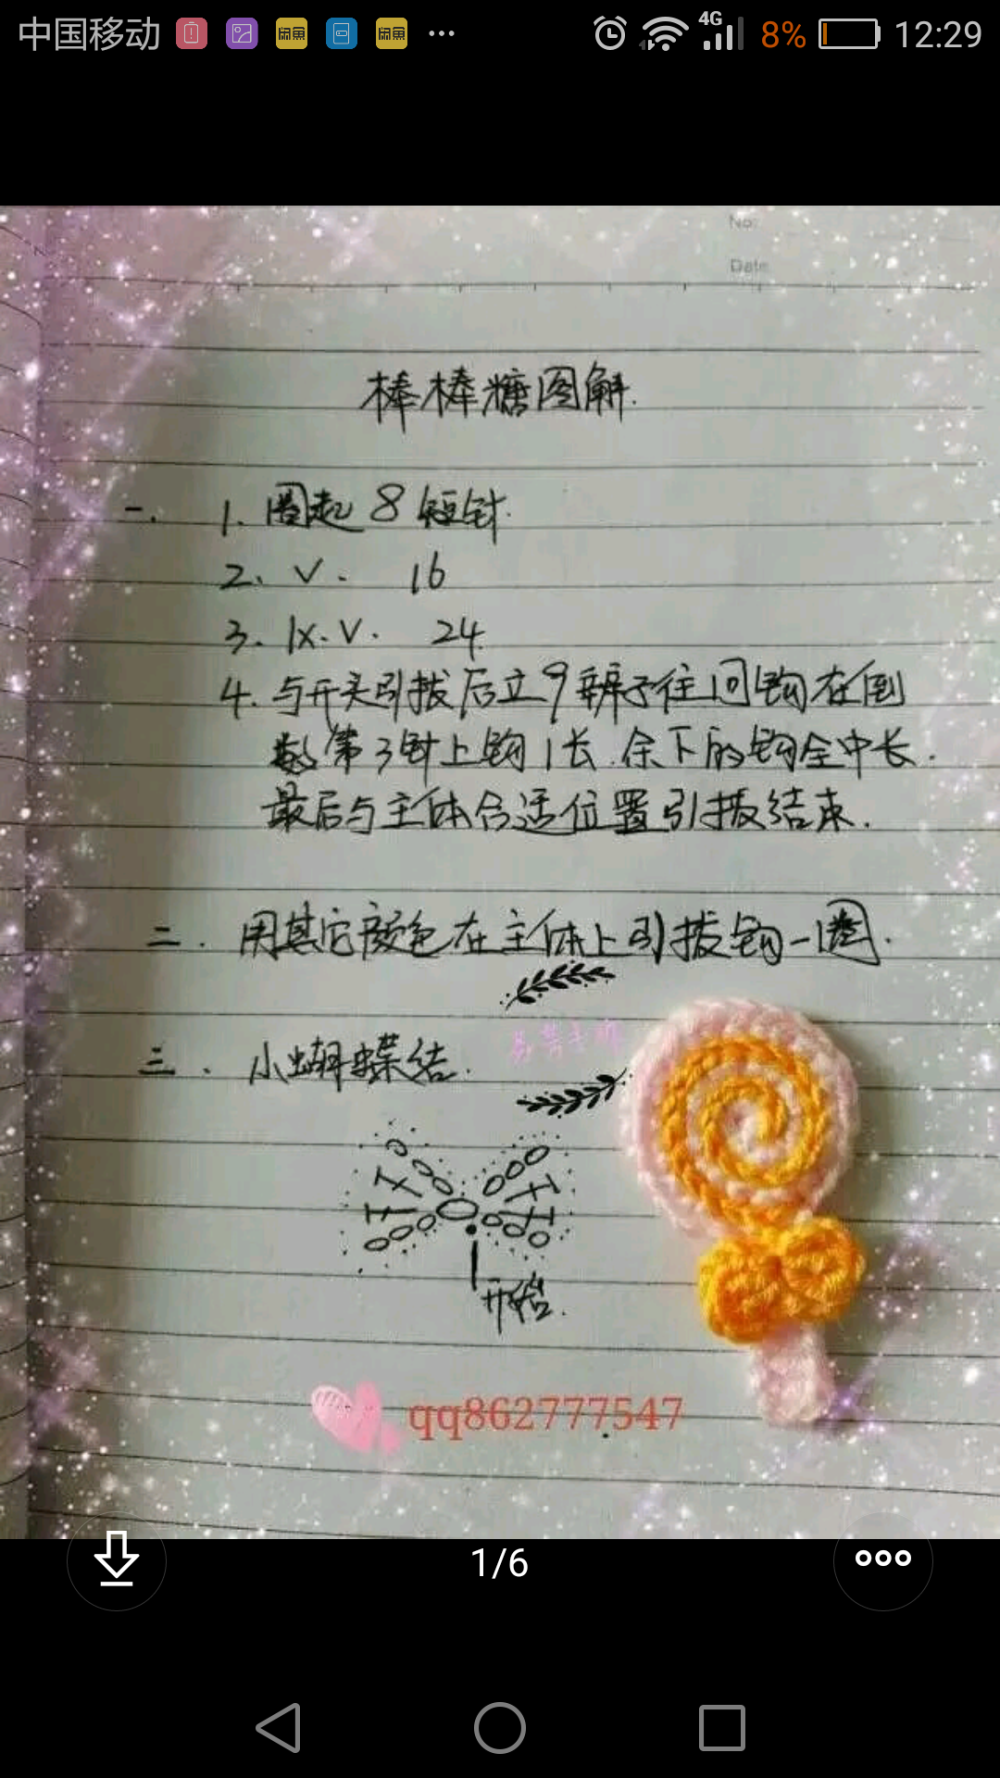 中国移动
闲鱼
闲鱼
4G
8%
12:29
No:
Date
棒棒糖图解.
一. 1. 圈起8短针.
2. V. 16
3. 1x.V. 24.
4. 与开头引拔后立9辫子往回钩在倒
数第3针上钩1长.余下的钩全中长.
最后与主体合适位置引拔结束.
二. 用其它颜色在主体上引拔钩一圈.
三. 小蝴蝶结.
开始.
qq862777547
1/6